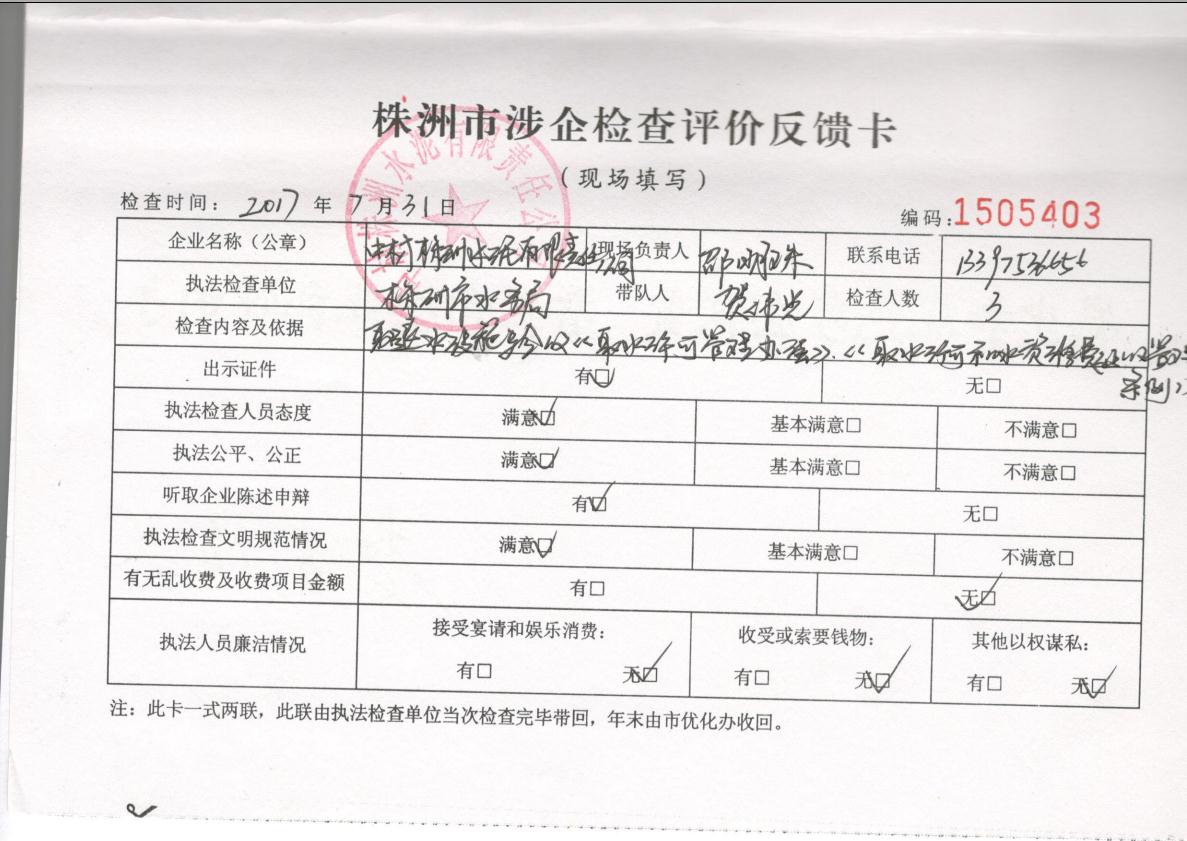 株洲市涉企检查评价反馈卡
(现场填写)
检查时间: 2017 年 7 月 31 日
编码:1505403
企业名称(公章) 中材株洲水泥有限责任公司 现场负责人 邵 联系电话 13397536656
执法检查单位 株洲市水务局 带队人 贺伟光 检查人数 3
检查内容及依据 取退水设施验收《取水许可管理办法》.《取水许可和水资源费征收管理
条例》
出示证件 有☑ 无□
执法检查人员态度 满意☑ 基本满意□ 不满意□
执法公平、公正 满意☑ 基本满意□ 不满意□
听取企业陈述申辩 有☑ 无□
执法检查文明规范情况 满意☑ 基本满意□ 不满意□
有无乱收费及收费项目金额 有□ 无☑
执法人员廉洁情况 接受宴请和娱乐消费: 收受或索要钱物: 其他以权谋私:
有□ 无☑ 有□ 无☑ 有□ 无☑
注: 此卡一式两联, 此联由执法检查单位当次检查完毕带回, 年末由市优化办收回。
中材株洲水泥有限责任公司